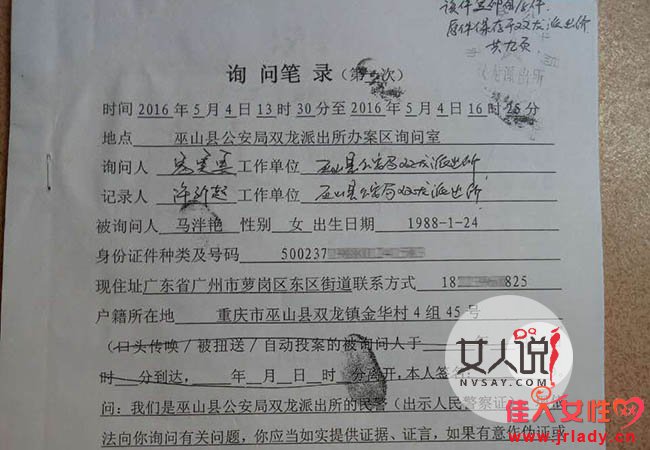 该件与原件
原件保存于双龙派出所
共九页
双龙派出所
询问笔录（第 次）
时间 2016 年 5 月 4 日 13 时 30 分至 2016 年 5 月 4 日 16 时 分
地点 巫山县公安局双龙派出所办案区询问室
询问人 工作单位 巫山县公安局双龙派出所
记录人 工作单位 巫山县公安局双龙派出所
被询问人 马泮艳 性别 女 出生日期 1988-1-24
身份证件种类及号码 500237
现住址广东省广州市萝岗区东区街道联系方式 18 825
户籍所在地 重庆市巫山县双龙镇金华村 4 组 45 号
（口头传唤／被扭送／自动投案的被询问人于 年
时 分到达， 年 月 日 时 分离开，本人签名：
问：我们是巫山县公安局双龙派出所的民警（出示人民警察证
法向你询问有关问题，你应当如实提供证据、证言，如果有意作伪证或
女人说！
NVSAY.COM
佳人女性网
www.jrlady.cn